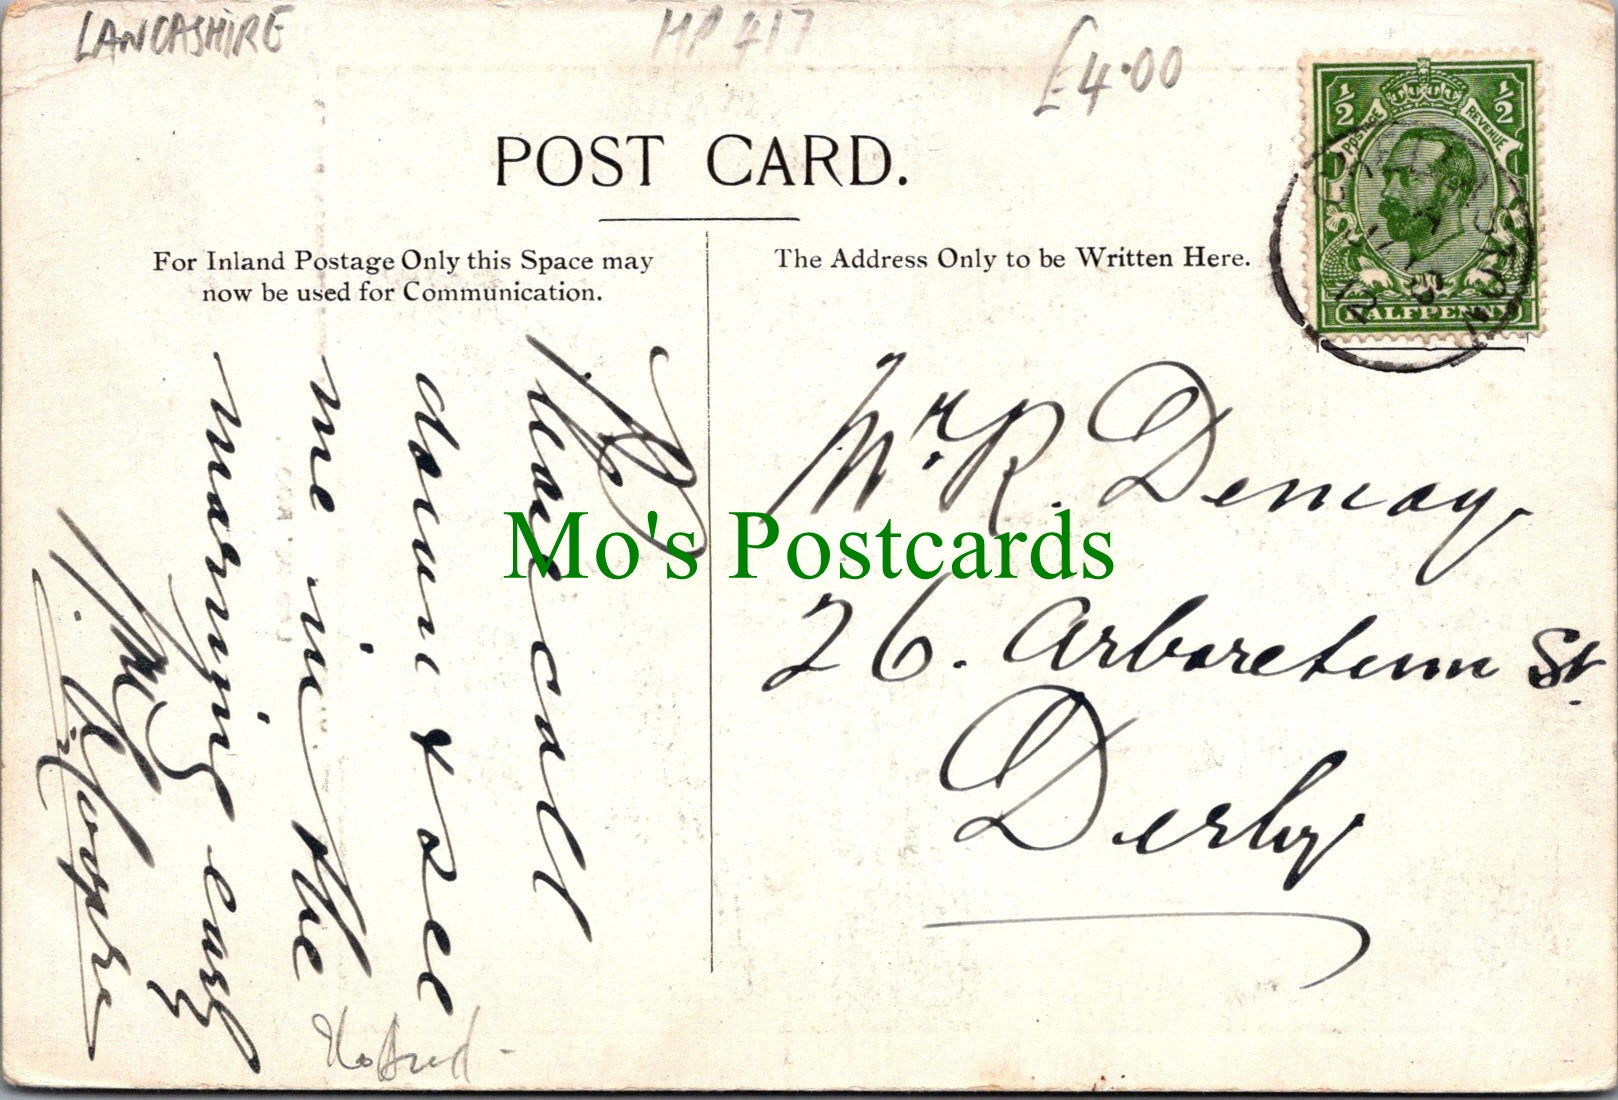 LANCASHIRE
MP 417
£4.00
½ ½
POSTAGE REVENUE
HALFPENNY
POST CARD.
For Inland Postage Only this Space may
now be used for Communication.
The Address Only to be Written Here.
Please call
down & see
me in the
morning early
Mr. R. Demcay
26. Arboretum St.
Derby
Mo's Postcards